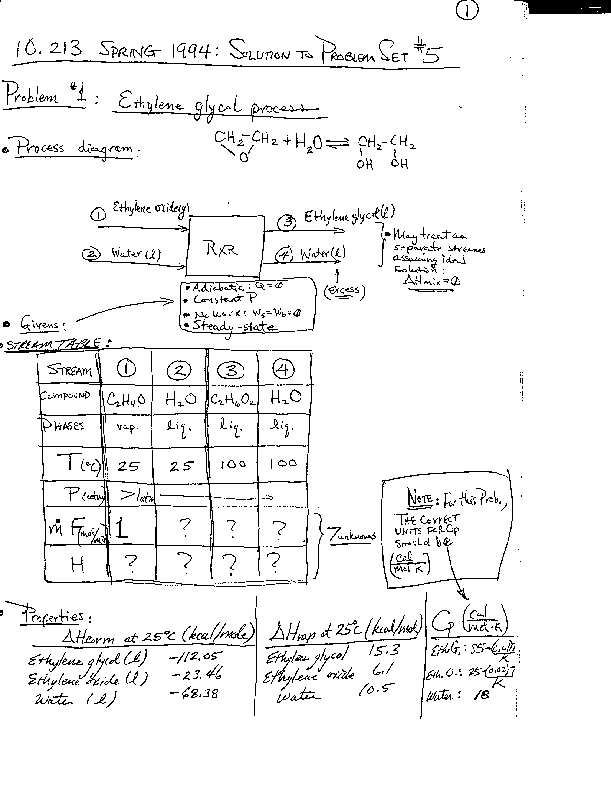 ①
10.213 SPRING 1994: SOLUTION TO PROBLEM SET #5
Problem #1: Ethylene glycol process
• Process diagram:
CH2-CH2 + H2O ⇌ CH2-CH2
O
OH OH
① Ethylene oxide(g)
② Water (l)
RXR
③ Ethylene glycol(l)
④ Water(l)
(excess)
• May treat as
separate streams
assuming ideal
solution:
ΔHmix = 0
• Givens:
• Adiabatic: Q=0
• Constant P
• No work: Ws=W=0
• Steady-state
• STREAM TABLE:
STREAM ① ② ③ ④
COMPOUND C2H4O H2O C2H6O2 H2O
PHASES vap. liq. liq. liq.
T(°C) 25 25 100 100
P >1atm
1 ? ? ?
H ? ? ? ?
7 unknowns
NOTE: For this Prob.,
THE CORRECT
UNITS FOR Cp
should be
(cal/mol K)
• Properties:
ΔHform at 25°C (kcal/mole)
Ethylene glycol (l) -112.05
Ethylene oxide (l) -23.46
Water (l) -68.38
ΔHvap at 25°C (kcal/mol)
Ethylene glycol 15.3
Ethylene oxide 6.1
Water 10.5
Cp (cal/mol·K)
Water: 18